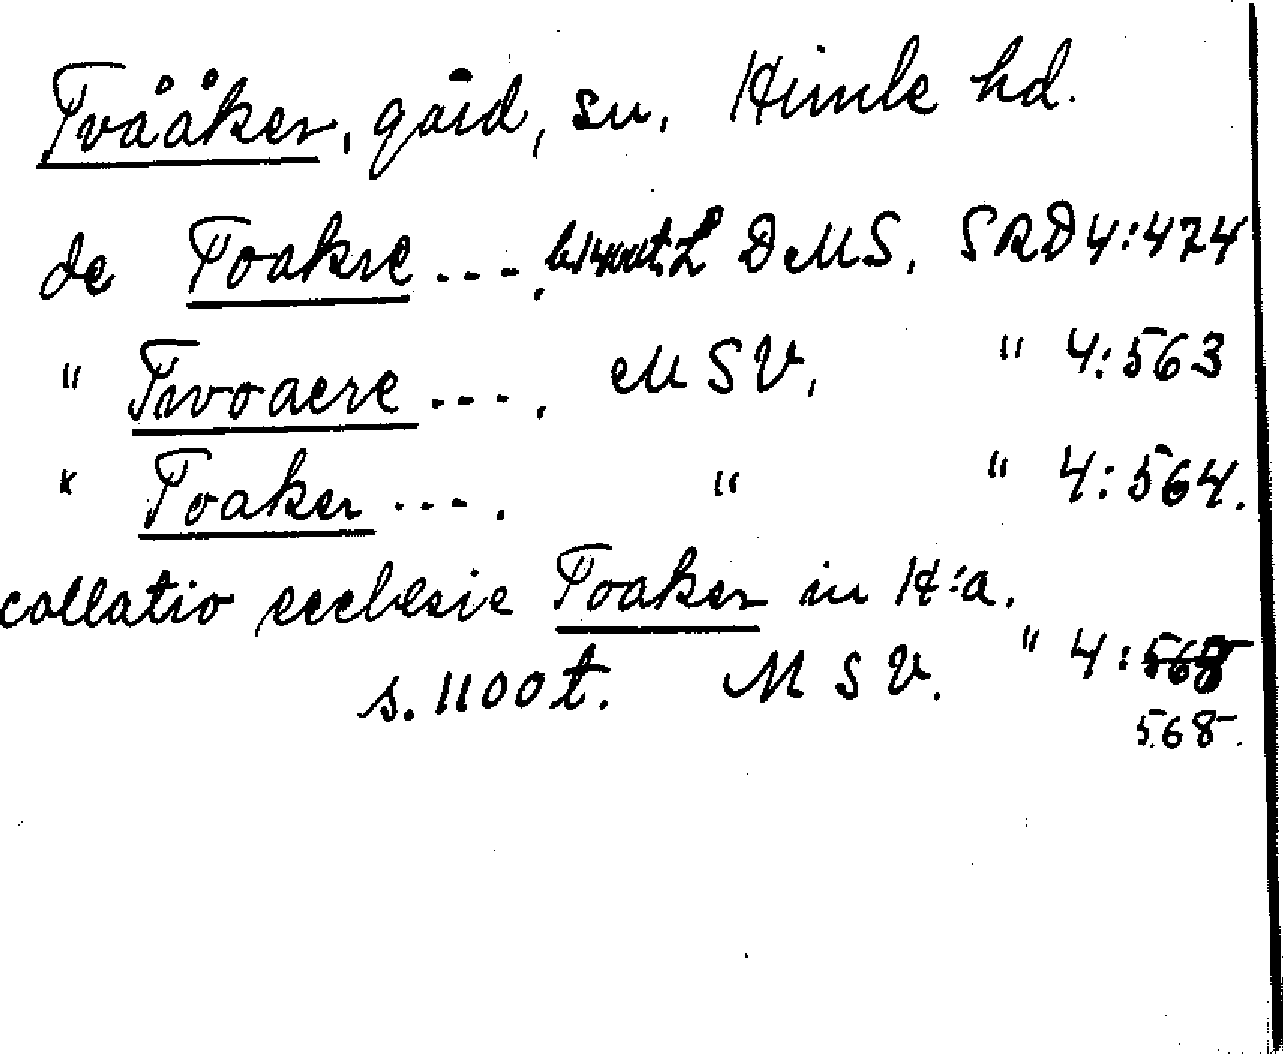 Tvååker, gård, sn, Himle hd.
de Toakre ... . b. 1400t. L DMS, SRD 4:474
" Twoacre ... . MSV, " 4:563
" Toaker ... . " " 4:564.
collatio ecclesie Toaker in H:a.
s. 1100t. MSV. " 4:568
568.